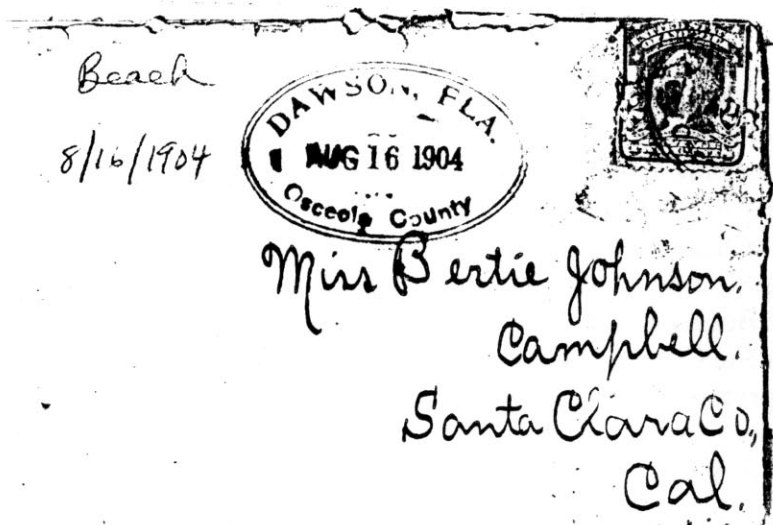 Beach
8/16/1904
DAWSON, FLA.
AUG 16 1904
Osceola County
Miss Bertie Johnson.
Campbell.
Santa Clara Co.,
Cal.